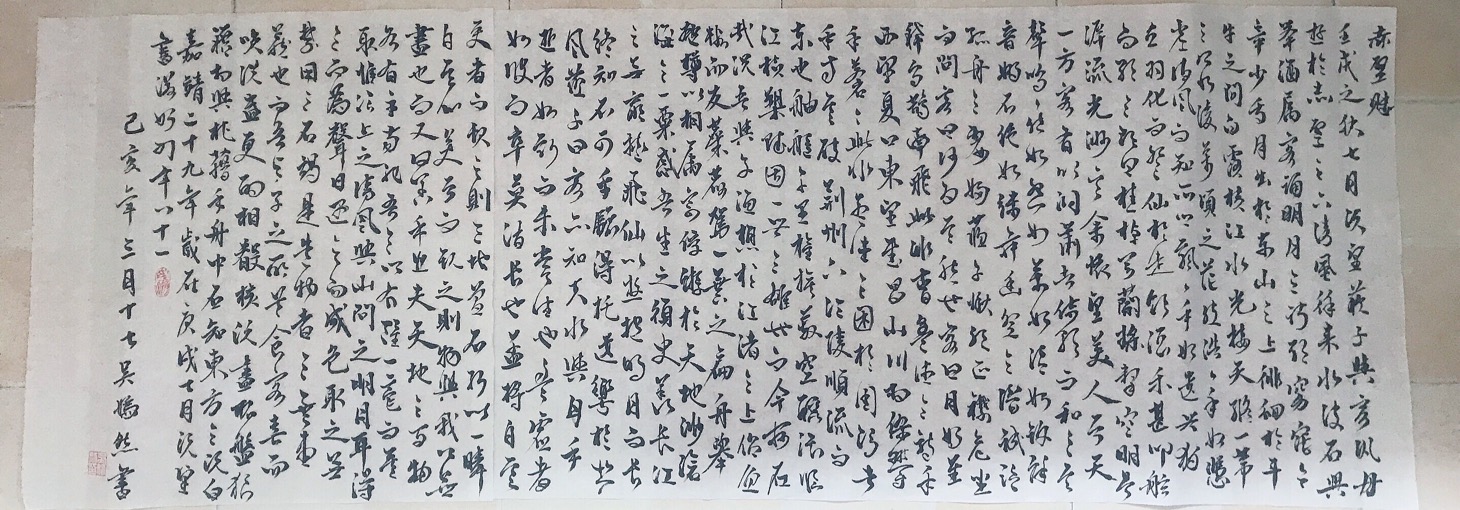 赤壁賦
壬戌之秋七月既望蘇子與客泛舟
遊於赤壁之下清風徐来水波不興
舉酒属客誦明月之詩歌窈窕之
章少焉月出於東山之上徘徊於斗
牛之間白露横江水光接天縱一葦
之所如凌萬頃之茫然浩浩乎如憑
虚御風而不知其所止飄飄乎如遺世獨
立羽化而登仙於是飲酒樂甚叩舷
而歌之歌曰桂棹兮蘭槳擊空明兮
泝流光渺渺兮余懷望美人兮天
一方客有吹洞簫者倚歌而和之其
聲嗚嗚然如怨如慕如泣如訴餘
音嫋嫋不絶如縷舞幽壑之潛蛟泣
孤舟之嫠婦蘇子愀然正襟危坐
而問客曰何為其然也客曰月明星
稀烏鵲南飛此非曹孟德之詩乎
西望夏口東望武昌山川相繆鬱
乎蒼蒼此非孟德之困於周郎者
乎方其破荆州下江陵順流而
東也舳艫千里旌旗蔽空釃酒臨
江横槊賦詩固一世之雄也而今安在
哉況吾與子漁樵於江渚之上侣魚
蝦而友麋鹿駕一葉之扁舟舉
匏樽以相屬寄蜉蝣於天地渺滄
海之一粟哀吾生之須臾羡長江
之無窮挾飛仙以遨遊抱明月而長
終知不可乎驟得托遺響於悲
風蘇子曰客亦知夫水與月乎
逝者如斯而未嘗往也盈虚者
如彼而卒莫消長也蓋將自其
变者而觀之則天地曾不能以一瞬
自其不變者而觀之則物與我皆無
盡也而又何羡乎且夫天地之間物
各有主苟非吾之所有雖一毫而莫
取惟江上之清風與山間之明月耳得
之而為聲目遇之而成色取之無
禁用之不竭是造物者之無盡
藏也而吾與子之所共食客喜而
笑洗盞更酌肴核既盡杯盤狼
藉相與枕藉乎舟中不知東方之既白
嘉靖二十九年歲在庚戌七月既望
書 時年八十一
己亥年三月十七吴嫣然書